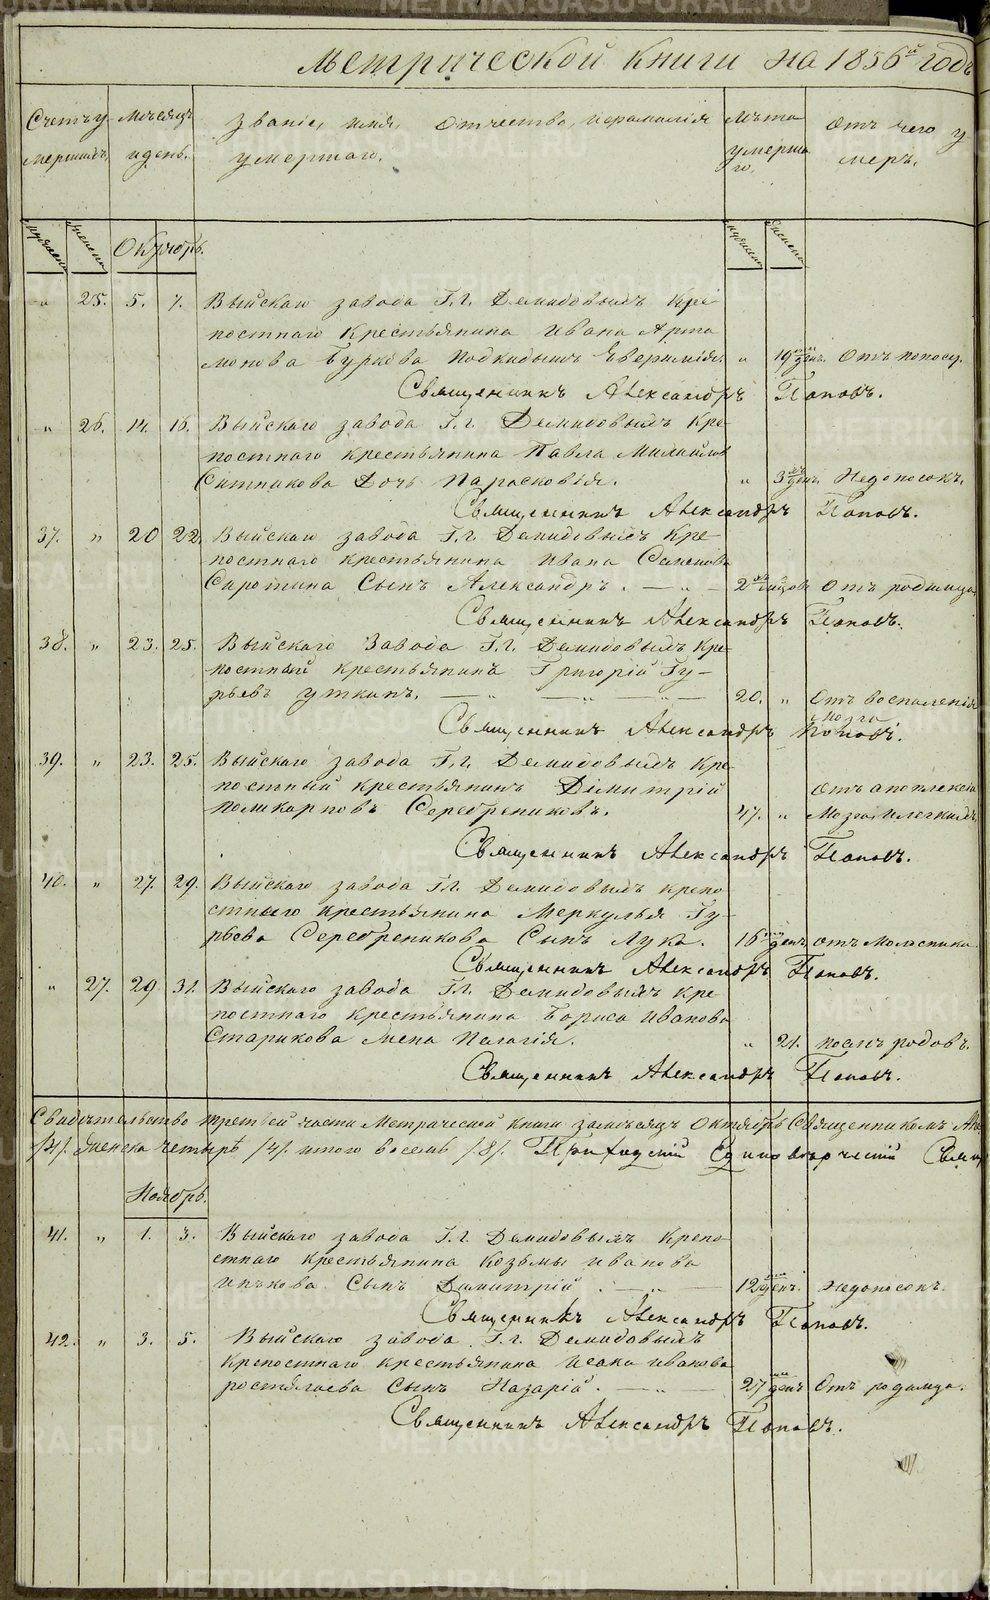 Метрической книги на 1856й годъ
Счетъ умершихъ.
Мѣсяцъ и день.
Званіе, имя, отчество, и фамилія умершаго.
Лѣта умершаго.
Отъ чего умеръ.
Октябрь.
" 25. 5. 7. Выйскаго завода Г.г. Демидовыхъ кре
постнаго крестьянина Ивана Арта
монова Буркова подкидышъ Евфимія. " 19 день. Отъ поносу.
Священникъ Александръ Поповъ.
" 26. 14. 16. Выйскаго завода Г.г. Демидовыхъ кре
постнаго крестьянина Павла
Ситникова дочь Парасковія. " 3 день. Недоносокъ.
Священникъ Александръ Поповъ.
37. " 20 22. Выйскаго завода Г.г. Демидовыхъ кре
постнаго крестьянина Ивана Семенова
Сиротина сынъ Александръ. — " — 2 Отъ родимца.
Священникъ Александръ Поповъ.
38. " 23. 25. Выйскаго Завода Г.г. Демидовыхъ кре
постный крестьянинъ Григорій Гу-
рьевъ Уткинъ. — " — " — " — 20. " Отъ воспаленія
мозга
Священникъ Александръ Поповъ.
39. " 23. 25. Выйскаго завода Г.г. Демидовыхъ кре
постный крестьянинъ Димитрій
Поликарповъ Серебрениковъ. 47. "
Священникъ Александръ Поповъ.
40. " 27. 29. Выйскаго завода Гг. Демидовыхъ крепо
стнаго крестьянина Меркулья Гу-
рьева Серебреникова сынъ Лука. 16 день
Священникъ Александръ Поповъ.
" 27. 29. 31. Выйскаго завода Гг. Демидовыхъ кре
постнаго крестьянина Бориса Иванова
Старикова жена Пелагія. " 21. послѣ родовъ.
Священникъ Александръ Поповъ.
Свидѣтельство третьей части Метрической книги за мѣсяцъ Октябрь Священникомъ
/4/. женска четыре /4/. итого восемь /8/. Приходскій Единовѣрческій
Ноябрь.
41. " 1. 3. Выйскаго завода Г.г. Демидовыхъ крепо
стнаго крестьянина Козьмы Иванова
сынъ Димитрій. — " — 12 день. Недоносокъ.
Священникъ Александръ Поповъ.
42. " 3. 5. Выйскаго завода Г.г. Демидовыхъ
крепостнаго крестьянина Исака Иванова
сынъ Назарій. — " — 27 день Отъ родимца.
Священникъ Александръ Поповъ.
METRIKI.GASO-URAL.RU